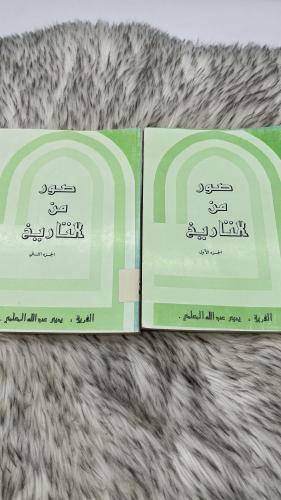 صور
من
التاريخ
الجزء الأول
الفريق . يحيى عبدالله المعلمي .
صور
من
التاريخ
الجزء الثاني
الفريق . يحيى عبدالله المعلمي .